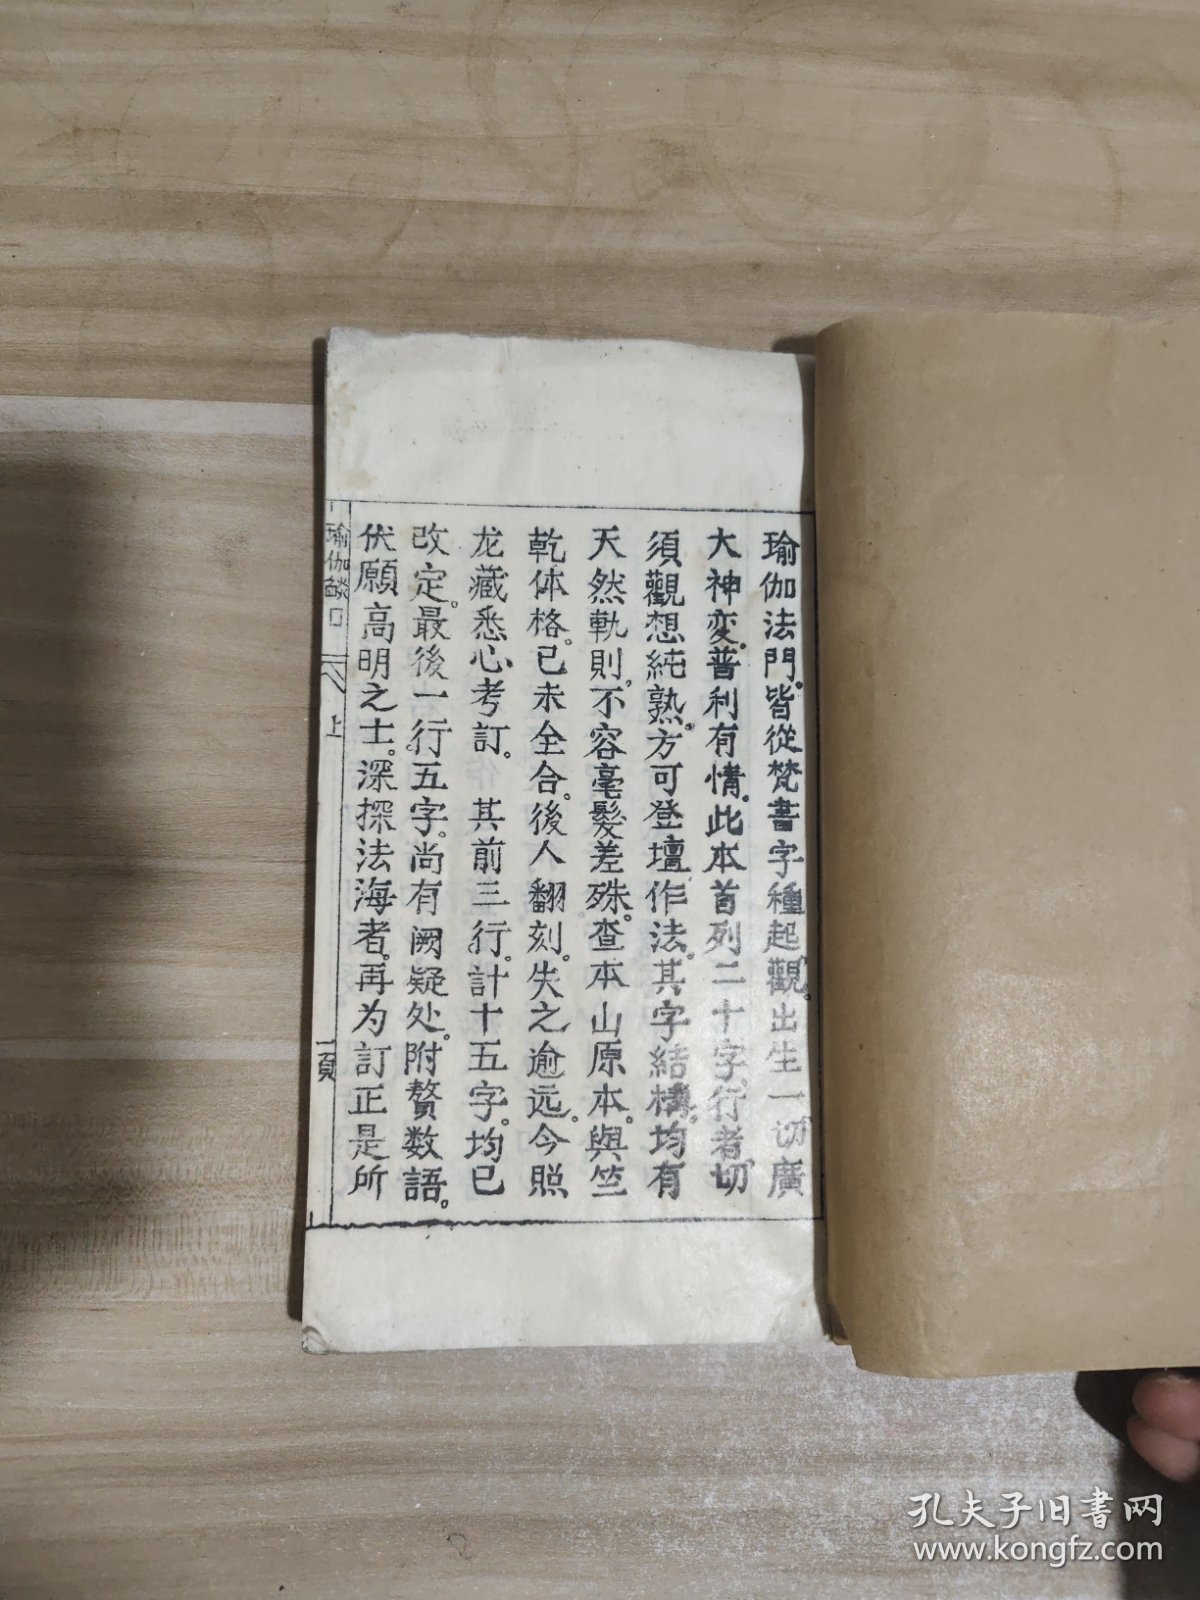 瑜伽法門。皆從梵書字種起觀。出生一切廣
大神変。普利有情。此本首列二十字。行者切
須觀想純熟。方可登壇作法。其字結構。均有
天然軌則。不容毫髮差殊。查本山原本。與竺
乾体格。已未全合。後人翻刻。失之逾远。今照
龙藏悉心考訂。其前三行。計十五字。均已
改定。最後一行。五字。尚有阙疑处。附贅数語。
伏願高明之士。深探法海者。再为訂正是所
瑜伽燄口 上 一頁
孔夫子旧书网
www.kongfz.com